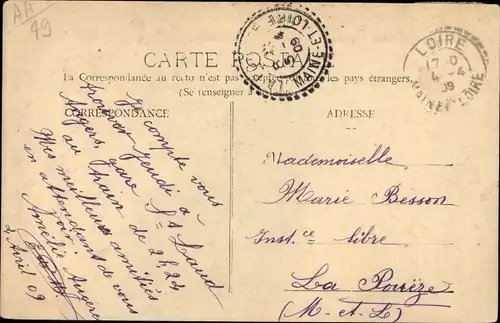 AH
49
CARTE POSTALE
La Correspondance au recto n'est pas les pays étrangers
(Se renseigner à
CORRESPONDANCE
ADRESSE
MAINE-ET-LOIRE
09
LOIRE
4 - 4
09
MAINE-ET-LOIRE
Je compte vous
trouver Jeudi à
Angers, gare St Laud
au train de 2h24
Mes meilleures amitiés
en attendant de vous
voir. Angèle
Amélie
2 Avril 09
Mademoiselle
Marie Besson
Inst.ce libre
La Pouëze
(M-et-L)